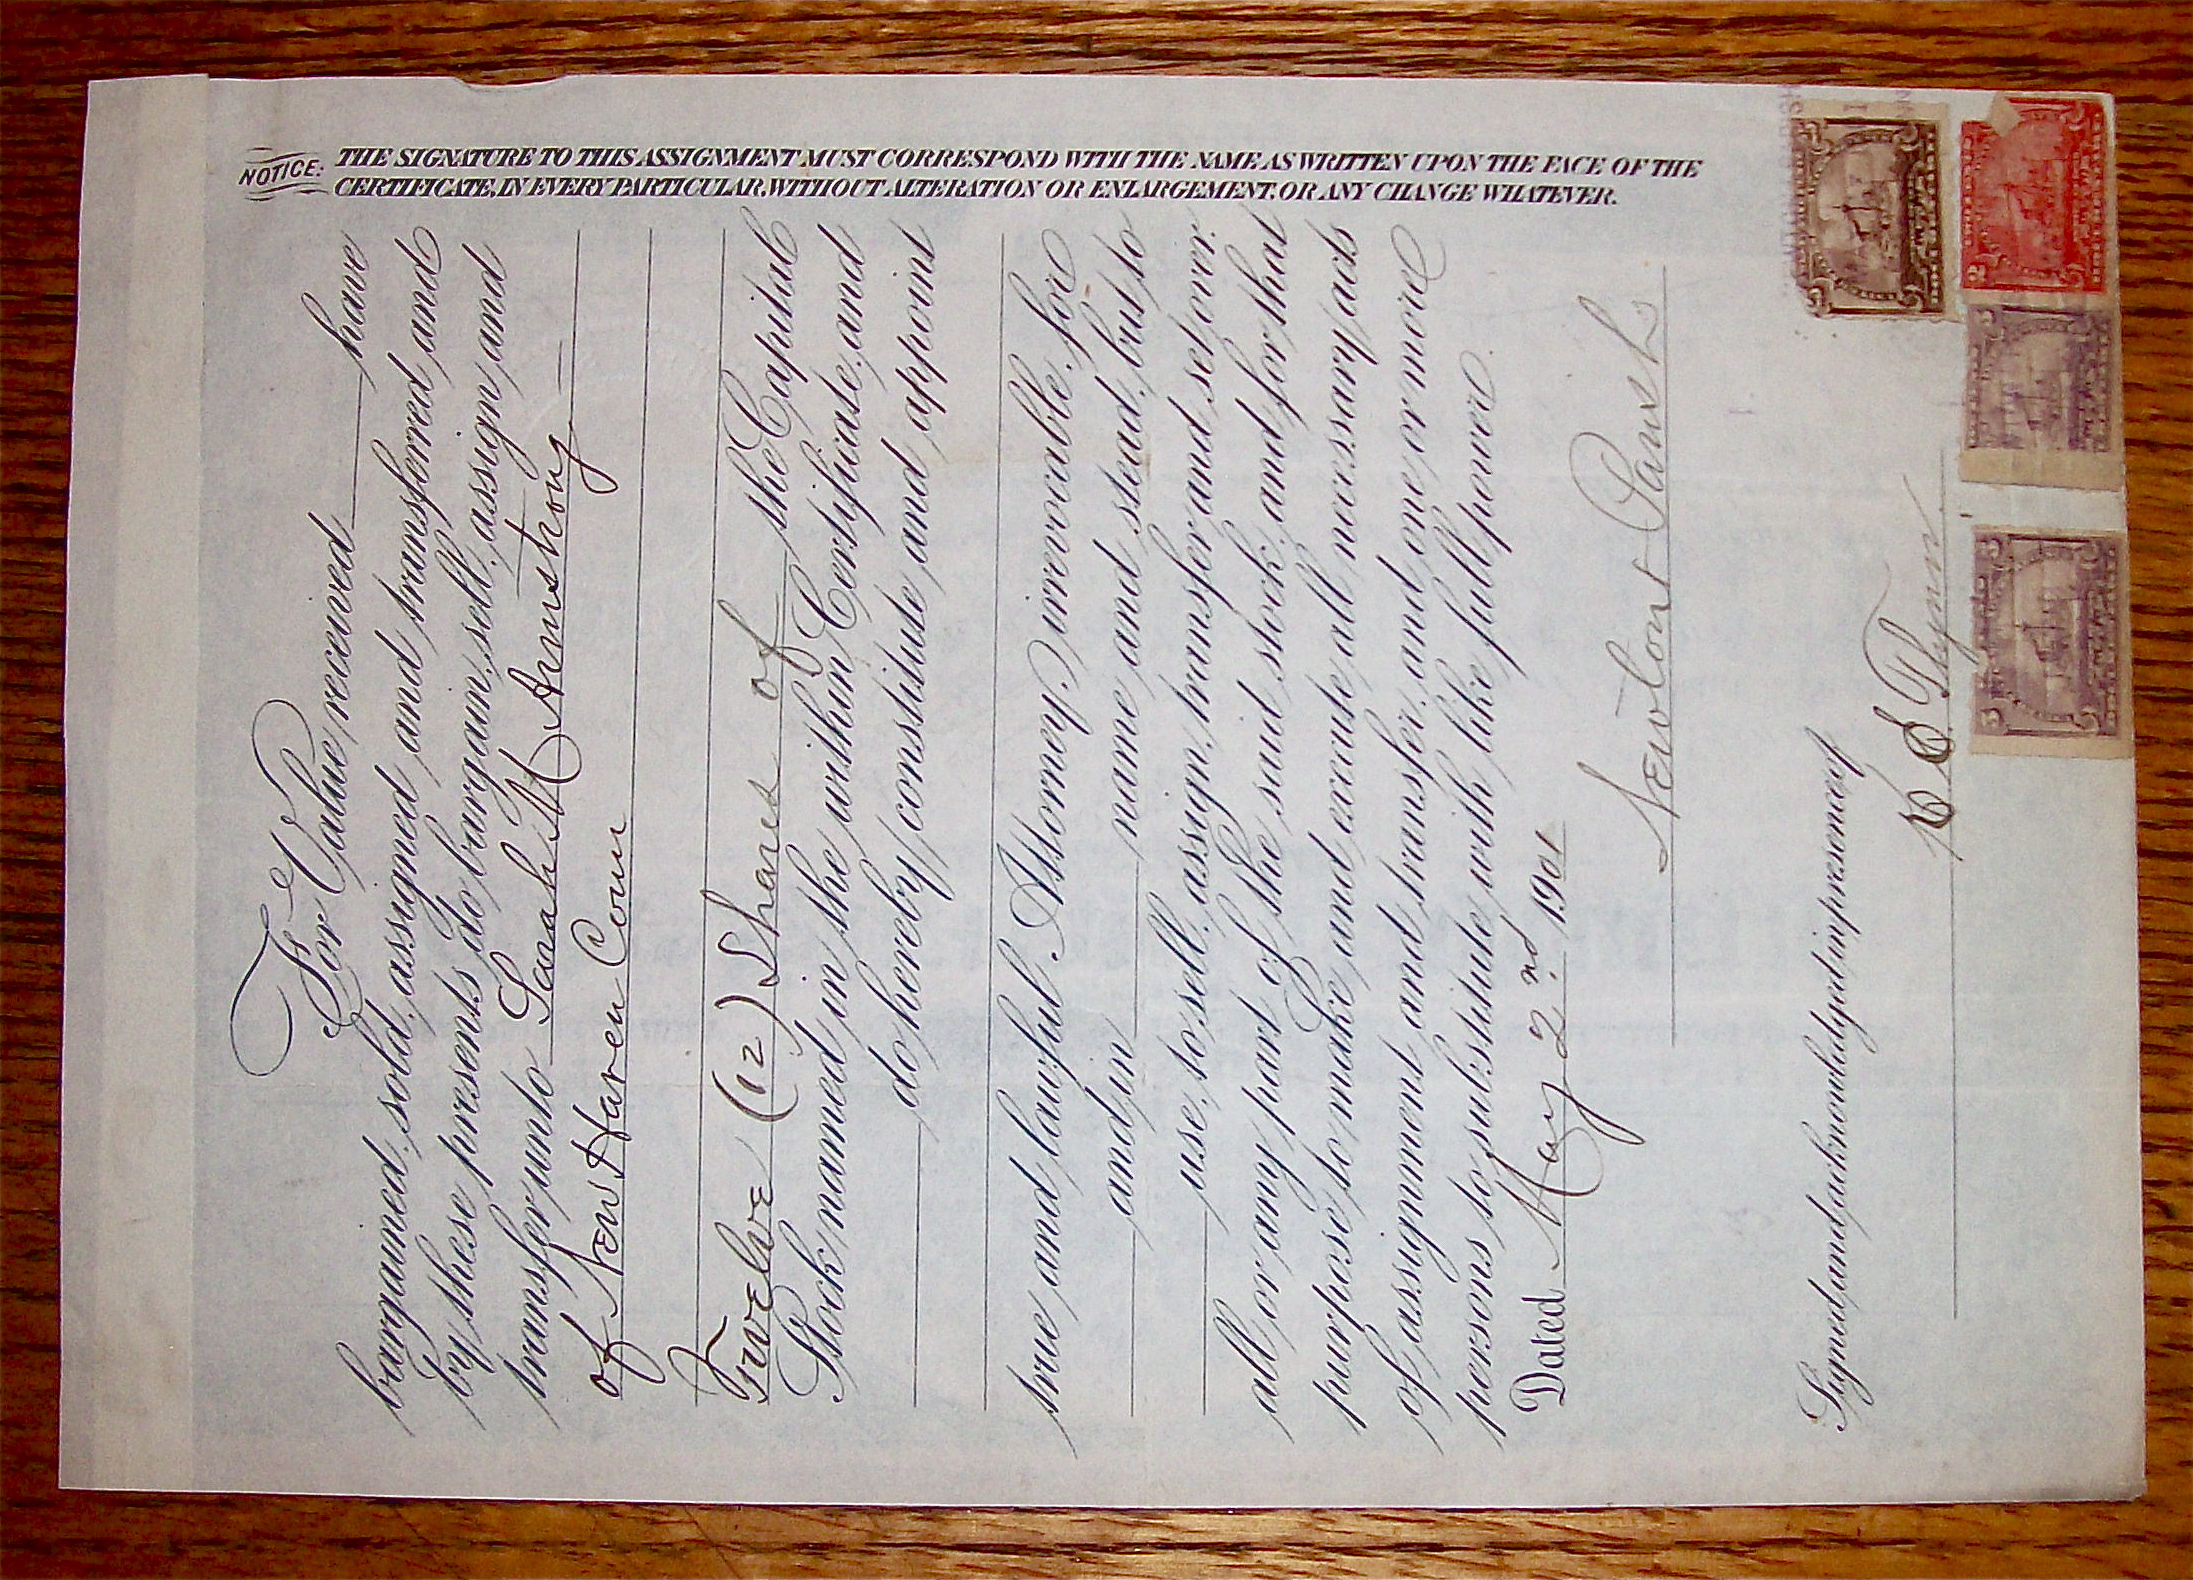 NOTICE: THE SIGNATURE TO THIS ASSIGNMENT MUST CORRESPOND WITH THE NAME AS WRITTEN UPON THE FACE OF THE
CERTIFICATE, IN EVERY PARTICULAR, WITHOUT ALTERATION OR ENLARGEMENT, OR ANY CHANGE WHATEVER.
For Value received have
bargained, sold, assigned and transferred, and
by these presents do bargain, sell, assign and
transfer unto Sarah M Armstrong
of New Haven Conn
Twelve (12) Shares of the Capital
Stock named in the within Certificate, and
do hereby constitute and appoint
true and lawful Attorney, irrevocable, for
and in name and stead, but to
use, to sell, assign, transfer and set over
all or any part of the said stock, and for that
purpose to make and execute all necessary acts
of assignment and transfer, and one or more
persons to substitute with like full power.
Dated May 2nd 1901
Signed and acknowledged in presence of